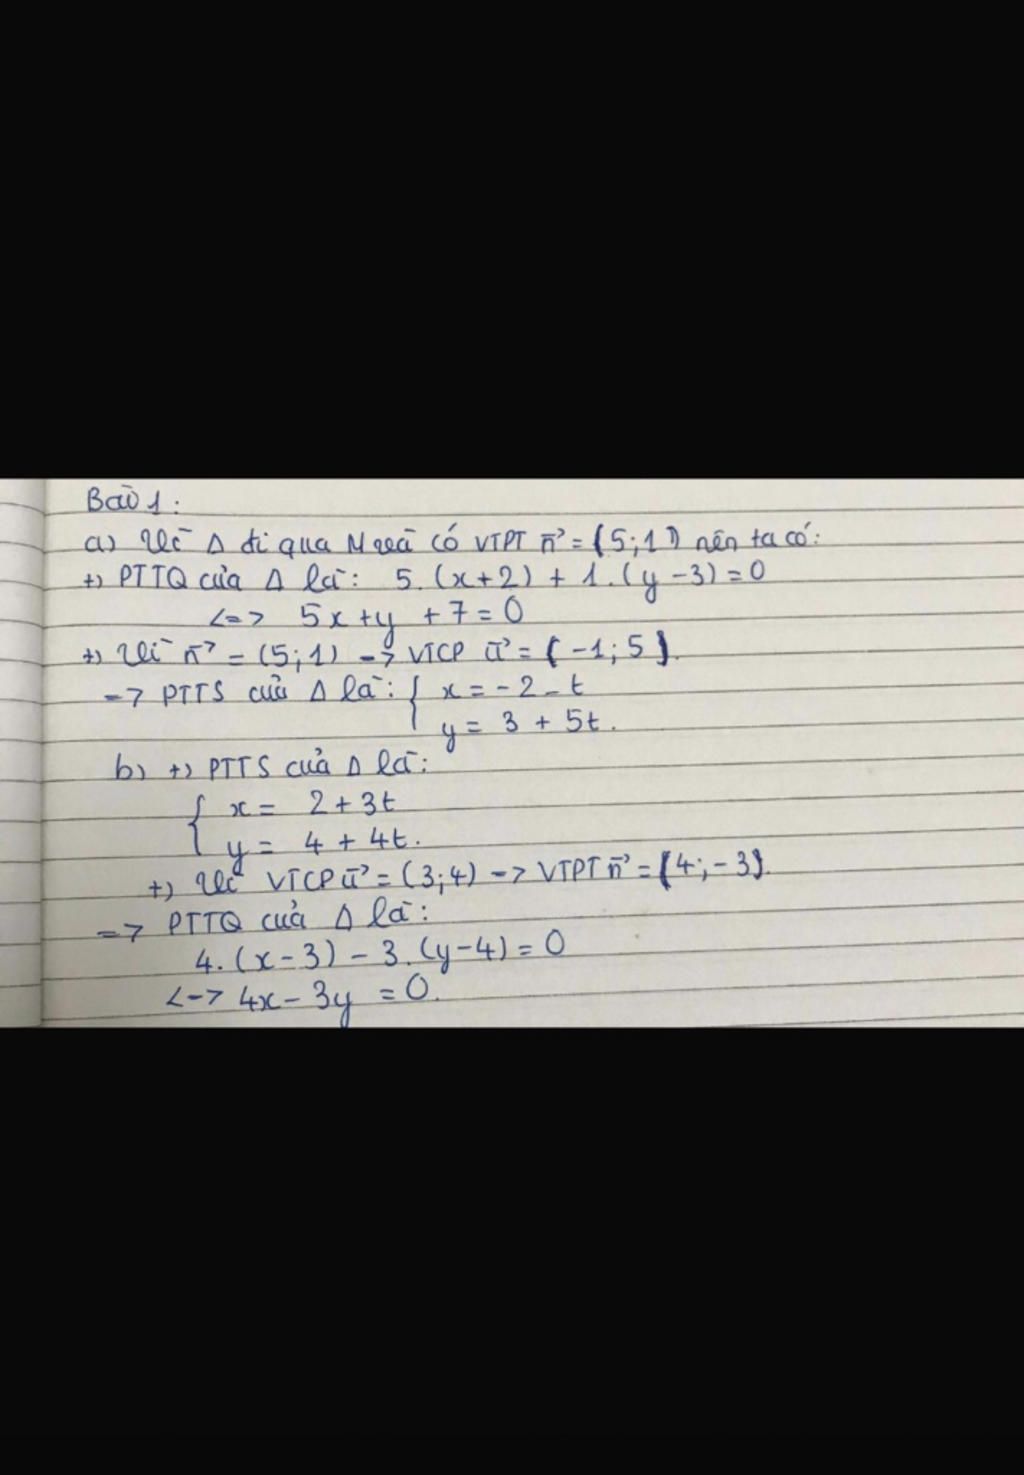 Bài 1:
a) Vì Δ đi qua M và có VTPT n→ = (5;1) nên ta có:
+) PTTQ của Δ là: 5.(x+2) + 1.(y-3) = 0
<=> 5x+y +7 = 0
+) Vì n→ = (5;1) -> VTCP u→ = (-1;5).
=> PTTS của Δ là: { x = -2 - t
y = 3 + 5t.
b) +) PTTS của Δ là:
{ x = 2 + 3t
y = 4 + 4t.
+) Vì VTCP u→ = (3;4) -> VTPT n→ = (4;-3).
=> PTTQ của Δ là:
4.(x-3) - 3.(y-4) = 0
<-> 4x - 3y = 0.